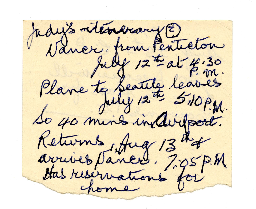 Judy's itinerary (2)
Vancr. from Penticton
July 12th at 4.30
P.M.
Plane to Seattle leaves
July 12th 5.10 P.M.
So 40 mins in Airport.
Returns, Aug 13th &
arrives Vancr. 7.05 P.M
Has reservations for
home